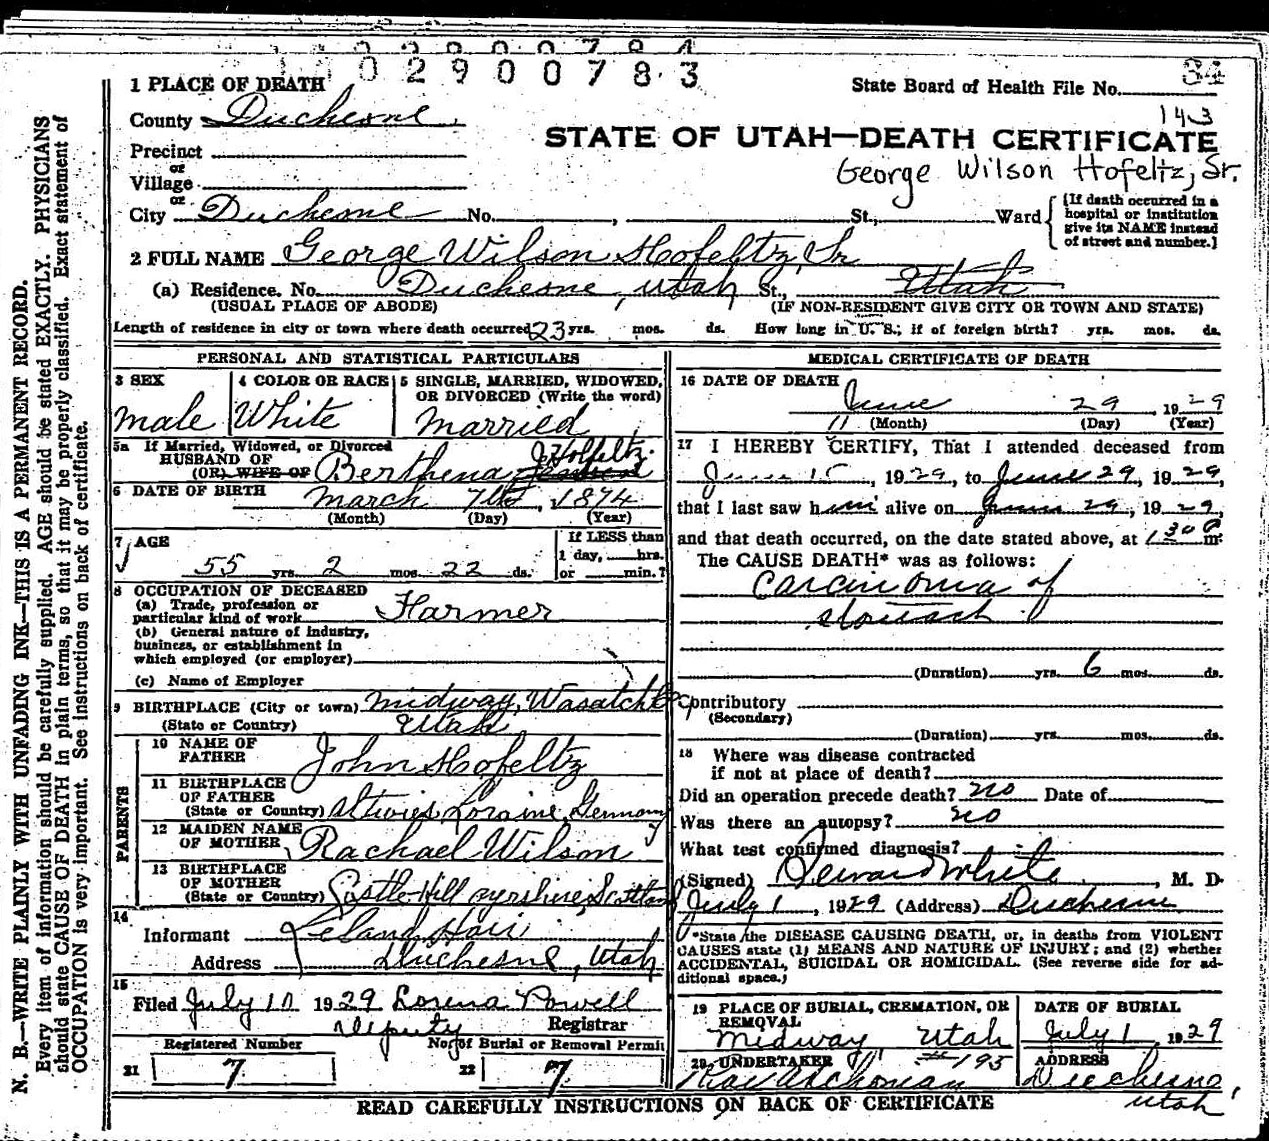 0 2 9 0 0 7 8 3
84
1 PLACE OF DEATH
State Board of Health File No.
143
County Duchesne
STATE OF UTAH—DEATH CERTIFICATE
Precinct
or
George Wilson Hofeltz, Sr.
Village
or
City Duchesne No. , St., Ward
[If death occurred in a
hospital or institution
give its NAME instead
of street and number.]
2 FULL NAME George Wilson Hofeltz, Sr
(a) Residence. No. Duchesne, Utah St., Utah
(USUAL PLACE OF ABODE) (IF NON-RESIDENT GIVE CITY OR TOWN AND STATE)
Length of residence in city or town where death occurred 23 yrs. mos. ds. How long in U. S.; if of foreign birth? yrs. mos. ds.
PERSONAL AND STATISTICAL PARTICULARS
3 SEX
male
4 COLOR OR RACE
White
5 SINGLE, MARRIED, WIDOWED,
OR DIVORCED (Write the word)
Married
5a If Married, Widowed, or Divorced
HUSBAND OF
(OR) WIFE OF Berthena J Hofeltz
6 DATE OF BIRTH March 7th, 1874
(Month) (Day) (Year)
7 AGE
55 yrs. 2 mos. 22 ds.
If LESS than
1 day, hrs.
or min.?
8 OCCUPATION OF DECEASED
(a) Trade, profession or
particular kind of work Farmer
(b) General nature of industry,
business, or establishment in
which employed (or employer)
(c) Name of Employer
9 BIRTHPLACE (City or town) Midway, Wasatch Co
(State or Country) Utah
PARENTS
10 NAME OF
FATHER John Hofeltz
11 BIRTHPLACE
OF FATHER
(State or Country) Loraine, Germany
12 MAIDEN NAME
OF MOTHER Rachael Wilson
13 BIRTHPLACE
OF MOTHER
(State or Country) Castle Hill Ayrshire, Scotland
14
Informant Leland Hair
Address Duchesne, Utah
15
Filed July 10 1929 Lorena Powell
Deputy Registrar
Registered Number No. of Burial or Removal Permit
21 7 22 7
MEDICAL CERTIFICATE OF DEATH
16 DATE OF DEATH
June 29, 1929
11 (Month) (Day) (Year)
17 I HEREBY CERTIFY, That I attended deceased from
June 15, 1929, to June 29, 1929,
that I last saw him alive on June 29, 1929,
and that death occurred, on the date stated above, at 1 30 P m.
The CAUSE DEATH* was as follows:
Carcinoma of
stomach
(Duration) yrs. 6 mos. ds.
Contributory
(Secondary)
(Duration) yrs. mos. ds.
18 Where was disease contracted
if not at place of death?
Did an operation precede death? no Date of
Was there an autopsy? no
What test confirmed diagnosis?
(Signed) White, M. D.
July 1, 1929 (Address) Duchesne
*State the DISEASE CAUSING DEATH, or, in deaths from VIOLENT
CAUSES state (1) MEANS AND NATURE OF INJURY; and (2) whether
ACCIDENTAL, SUICIDAL OR HOMICIDAL. (See reverse side for ad-
ditional space.)
19 PLACE OF BURIAL, CREMATION, OR
REMOVAL
Midway Utah
DATE OF BURIAL
July 1, 1929
20 UNDERTAKER #195
ADDRESS
Duchesne,
Utah
READ CAREFULLY INSTRUCTIONS ON BACK OF CERTIFICATE
N. B.—WRITE PLAINLY WITH UNFADING INK—THIS IS A PERMANENT RECORD.
Every item of information should be carefully supplied. AGE should be stated EXACTLY. PHYSICIANS
should state CAUSE OF DEATH in plain terms, so that it may be properly classified. Exact statement of
OCCUPATION is very important. See instructions on back of certificate.